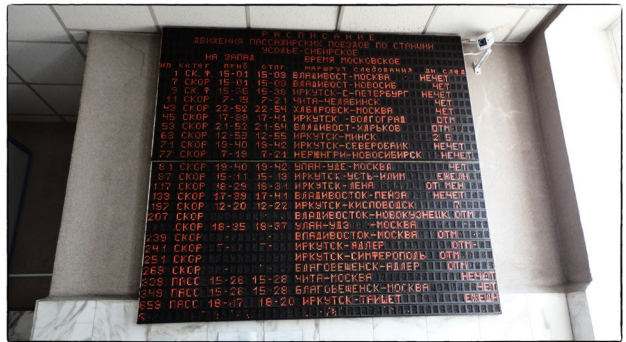 РАСПИСАНИЕ
ДВИЖЕНИЯ ПАССАЖИРСКИХ ПОЕЗДОВ ПО СТАНЦИИ
УСОЛЬЕ-СИБИРСКОЕ
НА ЗАПАД ВРЕМЯ МОСКОВСКОЕ
КАТЕГ ПРИБ ОТПР МАРШРУТ СЛЕДОВАНИЯ ДН.СЛЕД
1 СК.Ф 15-01 15-03 ВЛАДИВОСТ-МОСКВА НЕЧЕТ
7 СКОР 15-01 15-03 ВЛАДИВОСТ-НОВОСИБ ЧЕТ
9 СК.Ф 15-36 15-38 ИРКУТСК-С-ПЕТЕРБУРГ НЕЧЕТ
11 СКОР 7-19 7-21 ЧИТА-ЧЕЛЯБИНСК ЧЕТ
43 СКОР 22-52 22-54 ХАБАРОВСК-МОСКВА ЧЕТ
45 СКОР 17-39 17-41 ИРКУТСК-ВОЛГОГРАД ОТМ
53 СКОР 21-52 21-54 ВЛАДИВОСТ-ХАРЬКОВ ОТМ
63 СКОР 12-53 12-55 ИРКУТСК-МИНСК
71 СКОР 19-40 19-42 ИРКУТСК-СЕВЕРОБАЙК НЕЧЕТ
77 СКОР 7-19 7-21 НЕРЮНГРИ-НОВОСИБИРСК НЕЧЕТ
81 СКОР 19-40 19-42 УЛАН-УДЕ-МОСКВА ЧЕТ
87 СКОР 15-11 15-13 ИРКУТСК-УСТЬ-ИЛИМ
117 СКОР 18-29 18-31 ИРКУТСК-ЛЕНА
139 СКОР 17-39 17-41 ВЛАДИВОСТОК-ПЕНЗА НЕЧЕТ
197 СКОР 12-20 12-22 ИРКУТСК-КИСЛОВОДСК
207 СКОР - - ВЛАДИВОСТОК-НОВОКУЗНЕЦК ОТМ
СКОР 18-35 18-37 УЛАН-УДЭ -МОСКВА
239 СКОР - ВЛАДИВОСТОК-МОСКВА ОТМ
241 СКОР - - ИРКУТСК-АДЛЕР ОТМ
251 СКОР - ИРКУТСК-СИМФЕРОПОЛЬ ОТМ
269 СКОР - БЛАГОВЕЩЕНСК-АДЛЕР ОТМ
339 ПАСС 15-26 15-28 ЧИТА-МОСКВА
349 ПАСС 15-26 15-28 БЛАГОВЕЩЕНСК-МОСКВА ЧЕТ
659 ПАСС 18-17 18-20 ИРКУТСК-ТАЙШЕТ